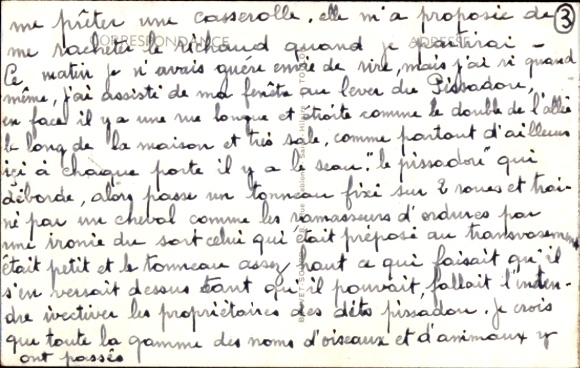 me prêter une casserolle. elle m'a proposée de ③
CORRESPONDANCE ADRESSE
me racheter le réchaud quand je partirai -
Ce matin je n'avais guére envie de rire, mais j'ai ri quand
même, j'ai assisté de ma fenêtre au lever du Pissadou,
en face il y a une rue longue et étroite comme le double de l'allée
le long de la maison et très sale, comme partout d'ailleurs
içi à chaque porte il y a le seau "le pissadore" qui
déborde, alors passe un tonneau fixé sur 2 roues et trai-
né par un cheval comme les ramasseurs d'ordures par
une ironie du sort celui qui était préposé au transvasement
était petit et le tonneau assez haut ce qui faisait qu'il
s'en versait dessus tant qu'il pouvait, fallait l'enten-
dre ivectiver les propriétaires des dits pissadou. Je crois
que toute la gamme des noms d'oiseaux et d'animaux y
ont passés